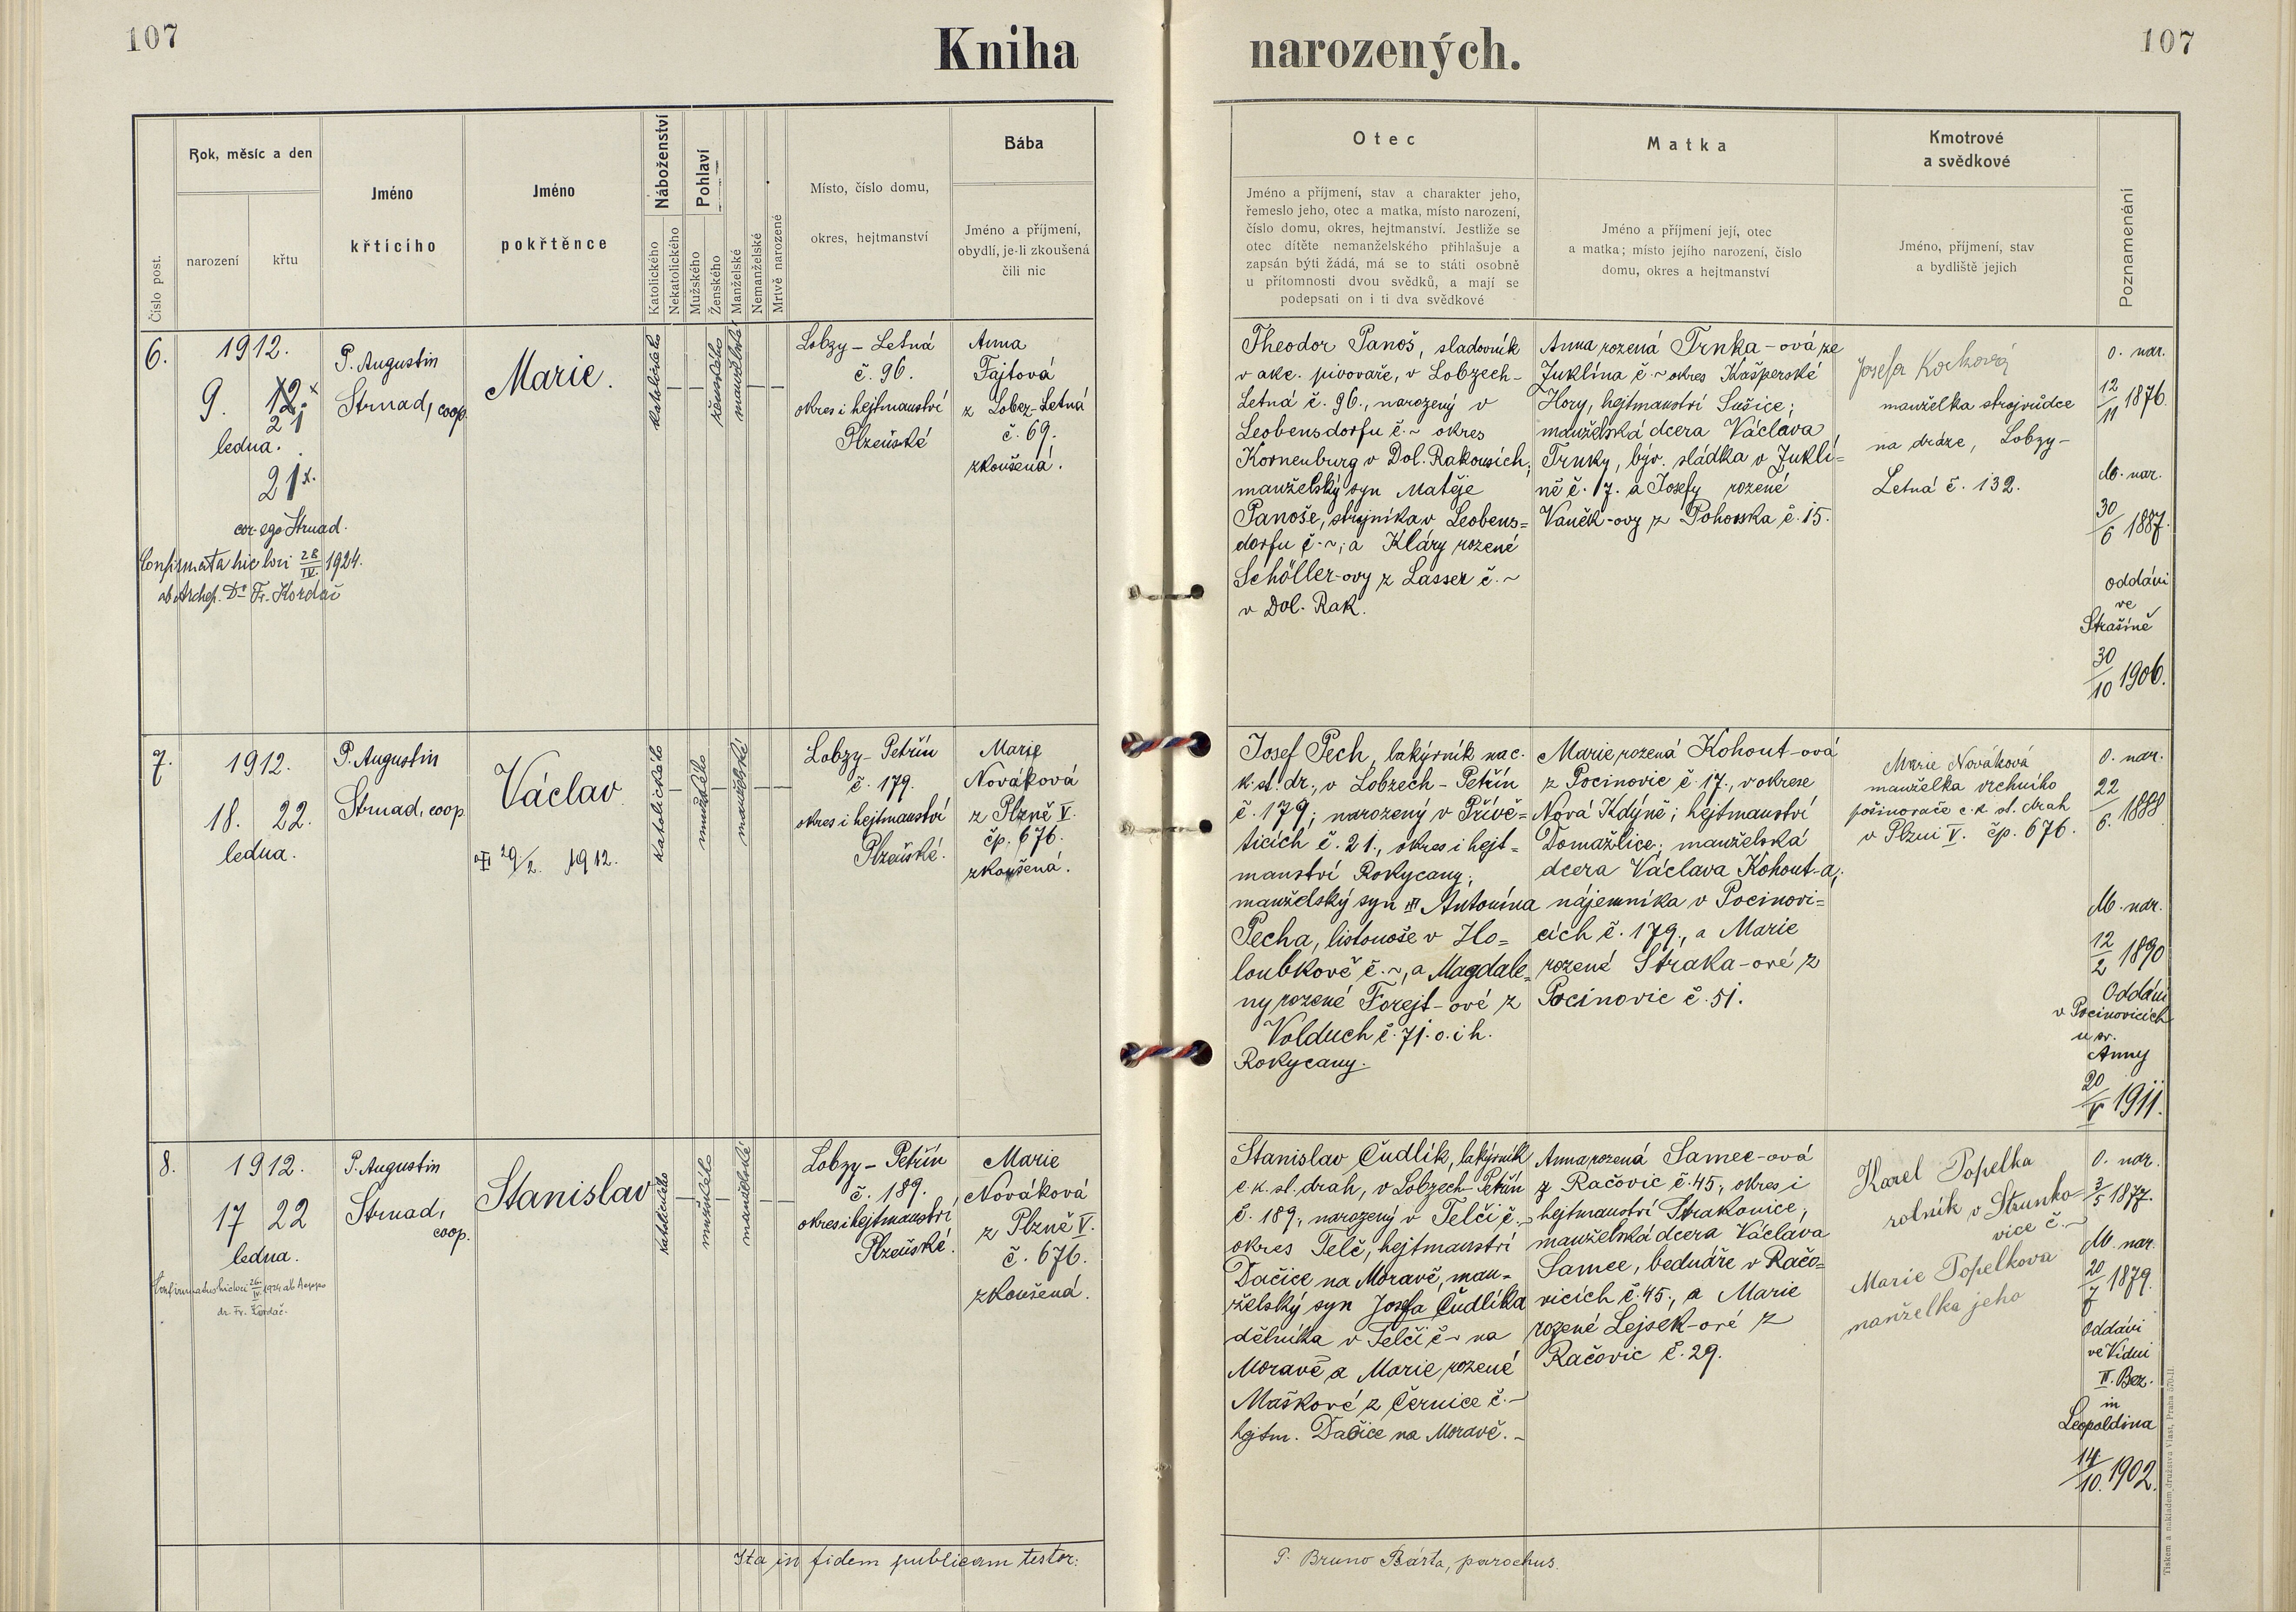 107
Kniha narozených.
107
Číslo post.
Rok, měsíc a den
narození
křtu
Jméno
křtícího
Jméno
pokřtěnce
Náboženství
Katolického
Nekatolického
Pohlaví
Mužského
Ženského
Manželské
Nemanželské
Mrtvě narozené
Místo, číslo domu,
okres, hejtmanství
Bába
Jméno a příjmení,
obydlí, je-li zkoušená
čili nic
Otec
Jméno a příjmení, stav a charakter jeho,
řemeslo jeho, otec a matka, místo narození,
číslo domu, okres, hejtmanství. Jestliže se
otec dítěte nemanželského přihlašuje a
zapsán býti žádá, má se to státi osobně
u přítomnosti dvou svědků, a mají se
podepsati on i ti dva svědkové
Matka
Jméno a příjmení její, otec
a matka; místo jejího narození, číslo
domu, okres a hejtmanství
Kmotrové
a svědkové
Jméno, příjmení, stav
a bydliště jejich
Poznamenání
6.
1912.
9. 12. x
21
ledna.
21 x.
cor. ego Strnad.
Confirmata hic loci 28/IV. 1924.
ab Archep. Dr Fr. Kordač
P. Augustin
Strnad, coop.
Marie.
katolického
ženského
manželské
Lobzy – Letná
č. 96.
okres i hejtmanství
Plzeňské
Anna
Fajtová
z Lobez-Letná
č. 69.
zkoušená.
Theodor Panoš, sladovník
v akc. pivovaře, v Lobzech-
Letná č. 96., narozený v
Leobensdorfu č. ~ okres
Korneuburg v Dol. Rakousích;
manželský syn Matěje
Panoše, strojníka v Leobens=
dorfu č. ~; a Kláry rozené
Schöller-ovy z Lasser č. ~
v Dol. Rak.
Anna rozená Trnka-ová ze
Juklína č. ~ okres Kašperské
Hory, hejtmanství Sušice;
manželská dcera Václava
Trnky, býv. sládka v Jukli=
ně č. 17. a Josefy rozené
Vaněk-ovy z Pohorska č. 15.
Josefa
manželka strojvůdce
na dráze, Lobzy-
Letná č. 132.
O. nar.
12/11 1876.
M. nar.
30/6 1887.
oddáni
ve
Strašíně
30/10 1906.
7.
1912.
18. 22.
ledna.
P. Augustin
Strnad, coop.
Václav
29/2. 1912.
katolického
mužského
manželské
Lobzy-Petřín
č. 179.
okres i hejtmanství
Plzeňské.
Marie
Nováková
z Plzně V.
čp. 676.
zkoušená.
Josef Pech, lakýrník na c.
k. st. dr., v Lobzech-Petřín
č. 179; narozený v Přívě=
ticích č. 21., okres i hejt=
manství Rokycany;
manželský syn Antonína
Pecha, listonoše v Ho=
loubkově č. ~, a Magdale=
ny rozené Forejt-ové z
Volduch č. 71. o. i h.
Rokycany.
Marie rozená Kohout-ová
z Pocinovic č. 17., v okrese
Nová Kdýně; hejtmanství
Domažlice; manželská
dcera Václava Kohout-a,
nájemníka v Pocinovi=
cích č. 179., a Marie
rozené Straka-ové z
Pocinovic č. 51.
Marie Nováková
manželka vrchního
pošinovače c. k. st. drah
v Plzni V. čp. 676.
O. nar.
22/6. 1888
M. nar.
12/2 1890
Oddáni
v Pocinovicích
u sv.
Anny
20/V 1911.
8.
1912.
17 22
ledna.
Confirmatus hic loci 26./IV. 1924 ab Aeppo
dr. Fr. Kordač.
P. Augustin
Strnad,
coop.
Stanislav
katolického
mužského
manželské
Lobzy – Petřín
č. 189.
okres i hejtmanství
Plzeňské.
Marie
Nováková
z Plzně V.
č. 676.
zkoušená.
Stanislav Čudlík, lakýrník
c. k. st. drah, v Lobzech-Petřín
č. 189., narozený v Telči č. ~
okres Telč, hejtmanství
Dačice na Moravě, man-
želský syn Josefa Čudlíka
dělníka v Telči č. ~ na
Moravě a Marie rozené
Maškové z Černice č. ~
hejtm. Dačice na Moravě. -
Anna rozená Samec-ová
z Račovic č. 45., okres i
hejtmanství Strakonice;
manželská dcera Václava
Samce, bednáře v Račo=
vicích č. 45., a Marie
rozené Lejsek-ové z
Račovic č. 29.
Karel Popelka
rolník v Strunko
vice č. ~
Marie Popelkova
manželka jeho
O. nar.
3/5 1877.
M. nar.
20/7 1879.
Oddáni
ve Vídni
II. Bez.
in
Leopoldina
14/10. 1902.
Ita in fidem publicam testor:
P. Bruno Bárta, parochus.
Tiskem a nákladem družstva Vlast, Praha 570-II.